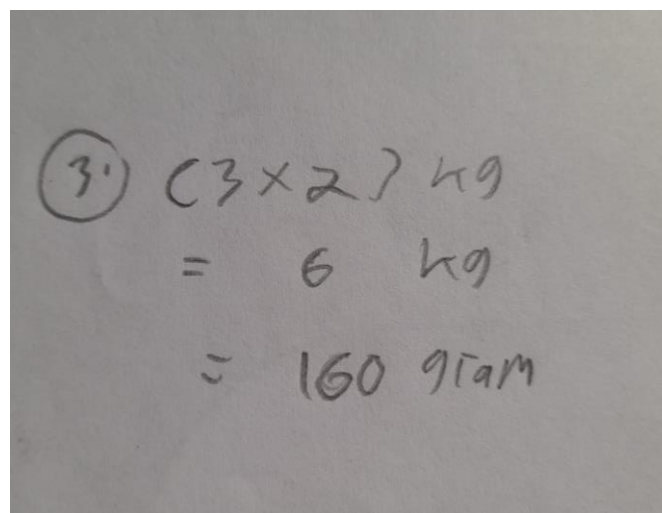 3. (3 × 2) kg
= 6 kg
= 160 gram